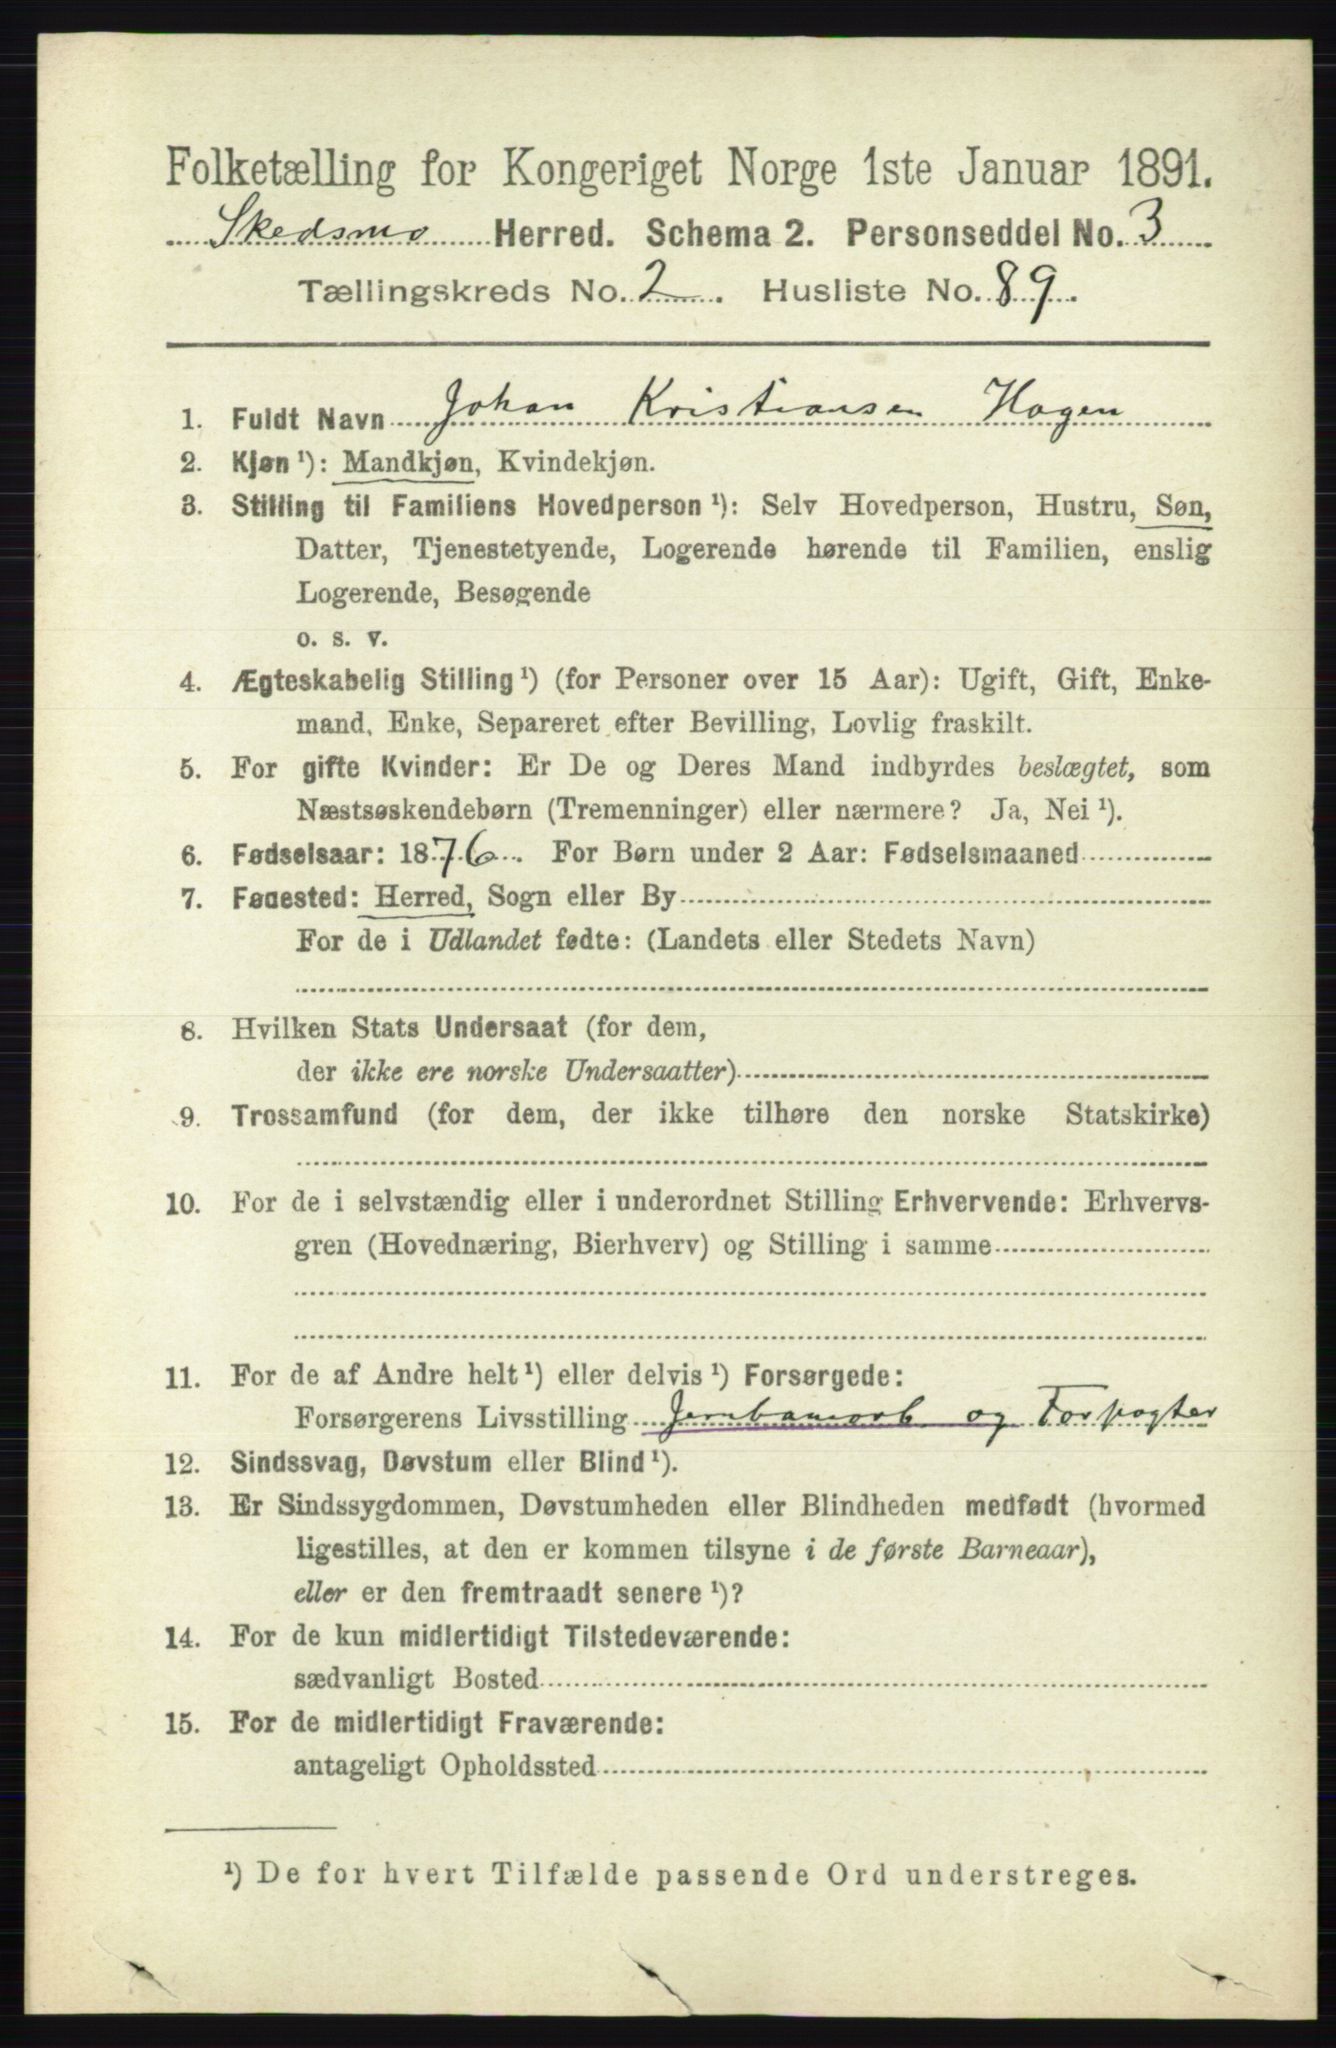 Folketælling for Kongeriget Norge 1ste Januar 1891.
Skedsmo Herred. Schema 2. Personseddel No. 3
Tællingskreds No. 2. Husliste No. 89.
1. Fuldt Navn Johan Kristiansen Hagen
2. Kjøn ¹): Mandkjøn, Kvindekjøn.
3. Stilling til Familiens Hovedperson ¹): Selv Hovedperson, Hustru, Søn,
Datter, Tjenestetyende, Logerende hørende til Familien, enslig
Logerende, Besøgende
o. s. v.
4. Ægteskabelig Stilling ¹) (for Personer over 15 Aar): Ugift, Gift, Enke-
mand, Enke, Separeret efter Bevilling, Lovlig fraskilt.
5. For gifte Kvinder: Er De og Deres Mand indbyrdes beslægtet, som
Næstsøskendebørn (Tremenninger) eller nærmere? Ja, Nei ¹).
6. Fødselsaar: 1876. For Børn under 2 Aar: Fødselsmaaned
7. Fødested: Herred, Sogn eller By
For de i Udlandet fødte: (Landets eller Stedets Navn)
8. Hvilken Stats Undersaat (for dem,
der ikke ere norske Undersaatter)
9. Trossamfund (for dem, der ikke tilhøre den norske Statskirke)
10. For de i selvstændig eller i underordnet Stilling Erhvervende: Erhvervs-
gren (Hovednæring, Bierhverv) og Stilling i samme
11. For de af Andre helt ¹) eller delvis ¹) Forsørgede:
Forsørgerens Livsstilling Jernbanearb og Forpagter
12. Sindssvag, Døvstum eller Blind ¹).
13. Er Sindssygdommen, Døvstumheden eller Blindheden medfødt (hvormed
ligestilles, at den er kommen tilsyne i de første Barneaar),
eller er den fremtraadt senere ¹)?
14. For de kun midlertidigt Tilstedeværende:
sædvanligt Bosted
15. For de midlertidigt Fraværende:
antageligt Opholdssted
¹) De for hvert Tilfælde passende Ord understreges.